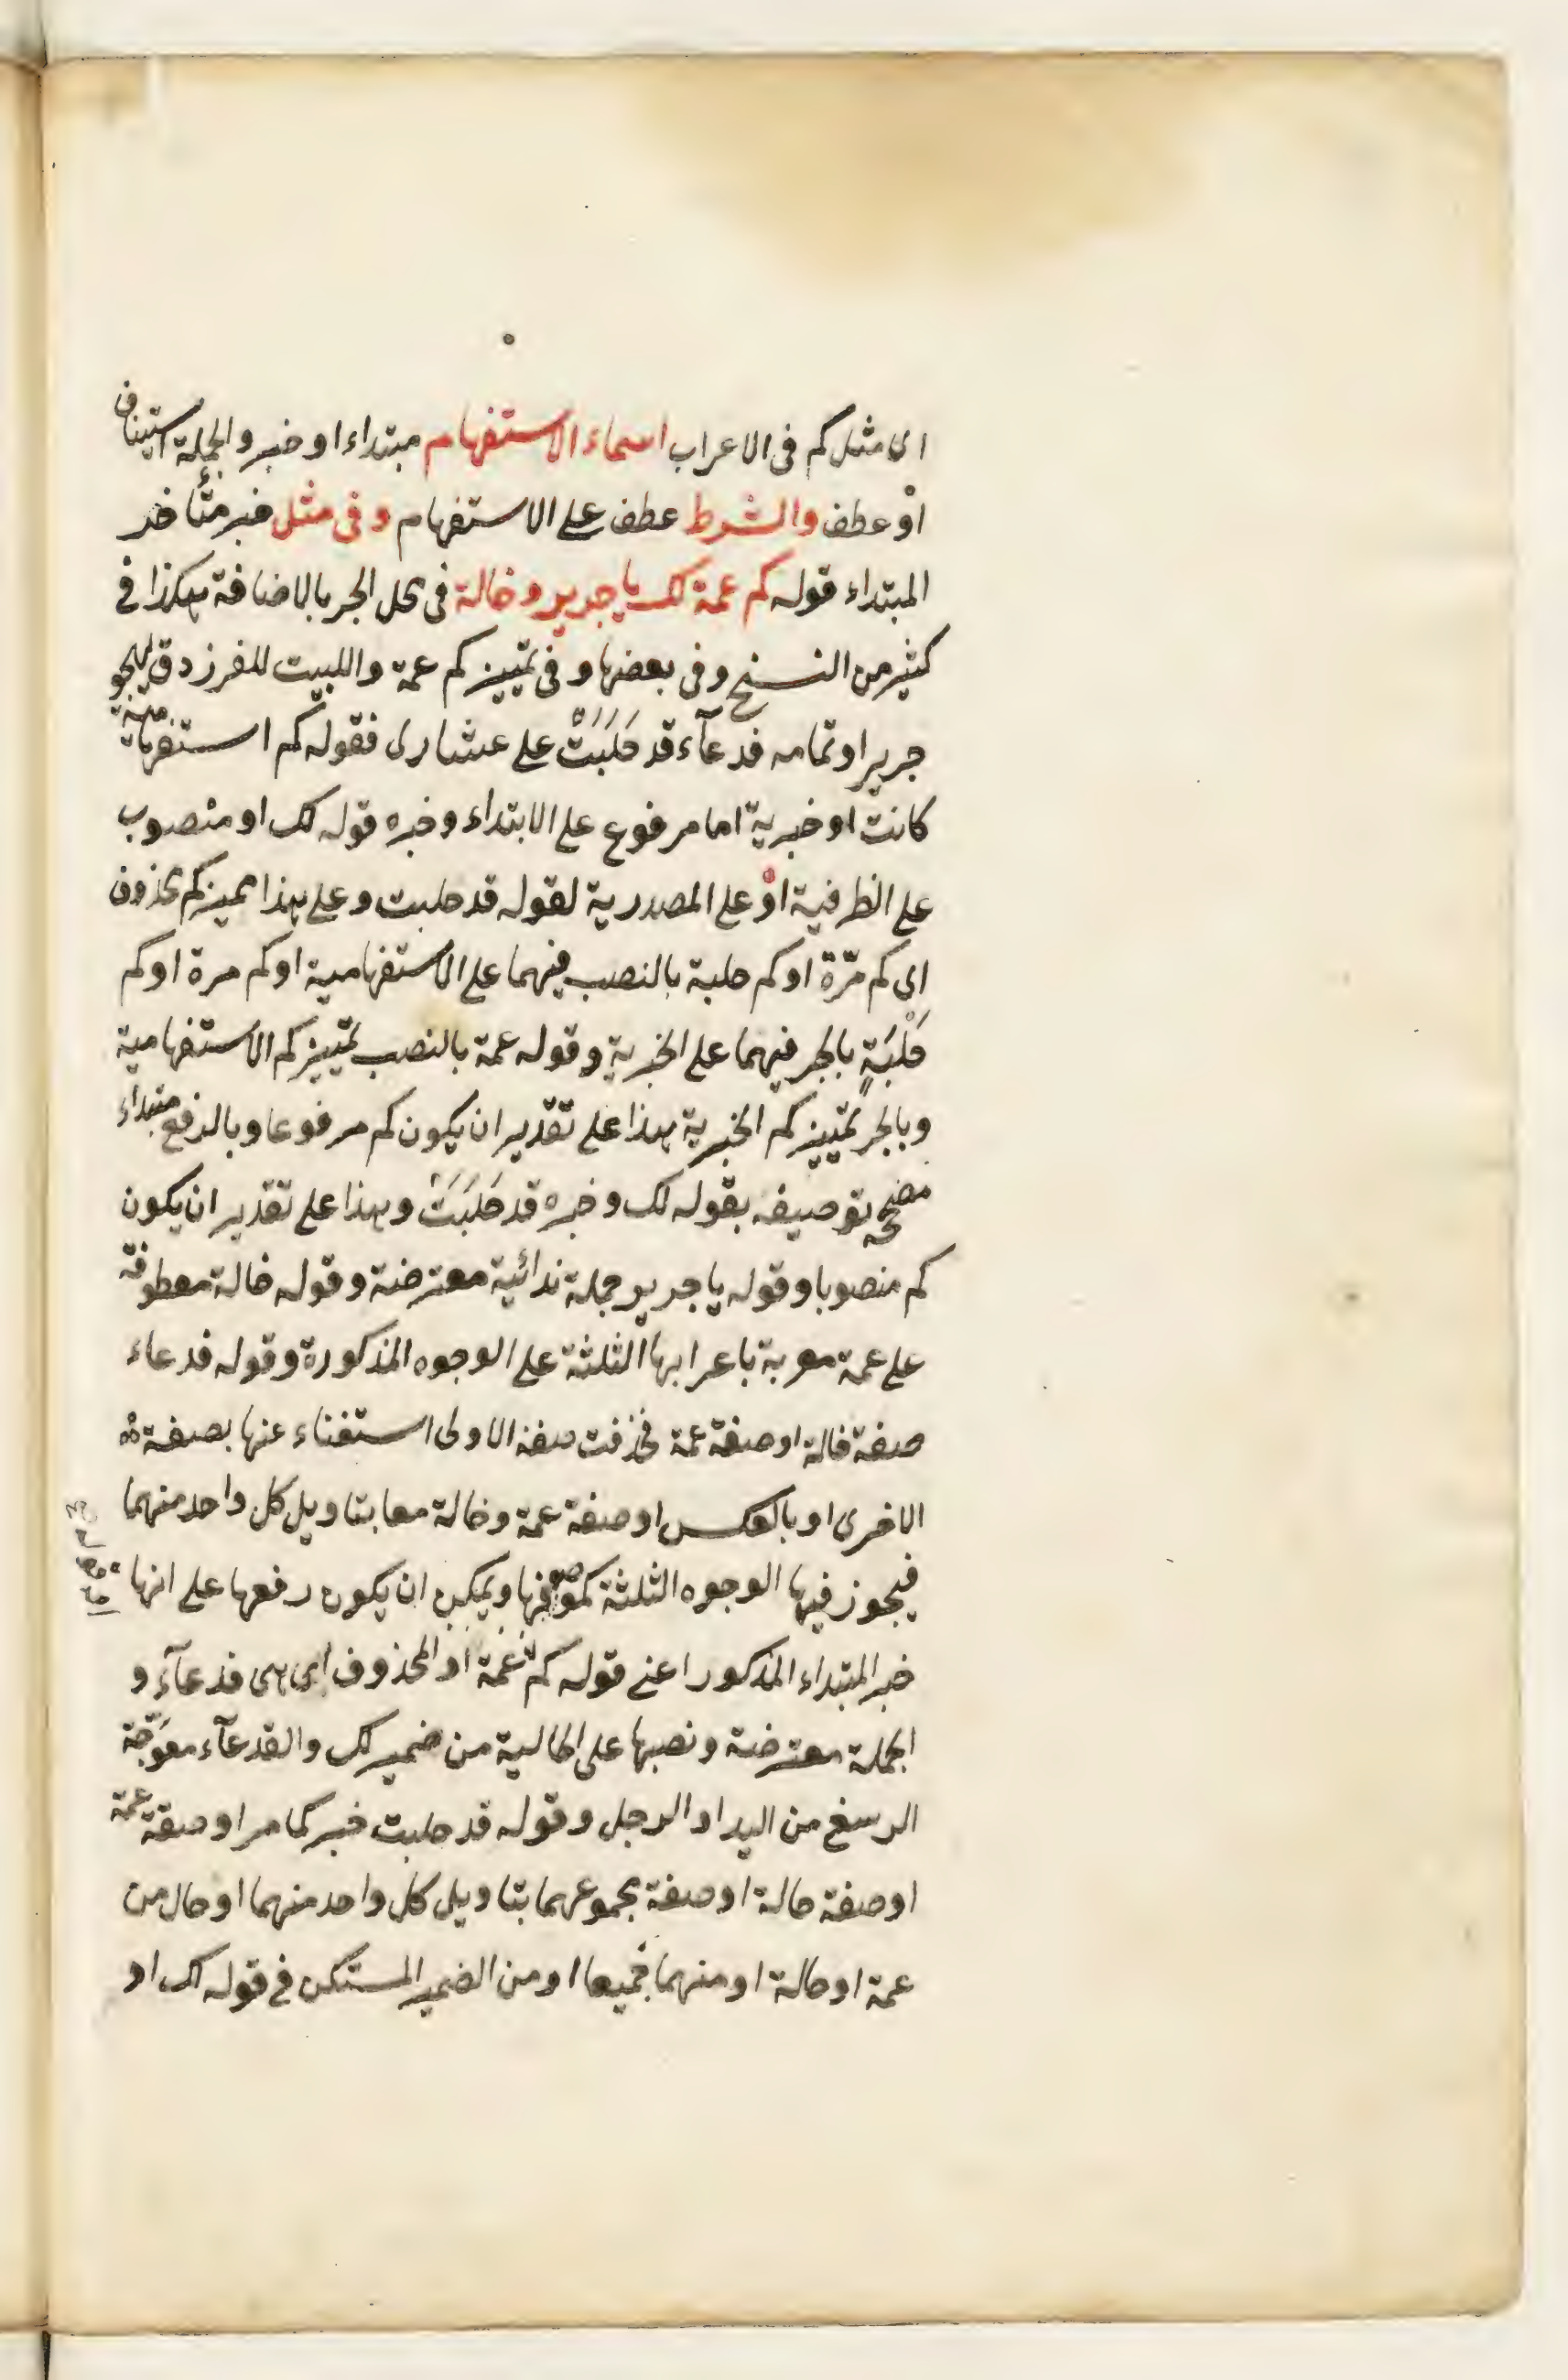 اى مثل كم فى الاعراب اسماء الاستفهام مبتداء او خبر والجملة استيناف
اوْ عطف والشرط عطف على الاستفهام وفى مثل خبر متأخر
المبتداء قوله كم عمة لك يا جرير وخالة فى محل الجر بالاضافة هكذا فى
كثير من النسخ وفى بعضها وفى تمييز كم عمة والبيت للفرزدق يهجو
جرير او تمامه فدعآء قد حَلَبَتْ على عشارى فقوله كم استفهامية
كانت او خبرية اما مرفوع على الابتداء وخبره قوله لك او منصوب
على الظرفية اوْ على المصدرية لقوله قد حلبت وعلى هذا مميز كم محذوف
اى كم مرّة او كم حلبة بالنصب فيهما على الاستفهامية او كم مرة او كم
حَلْبَةٍ بالجر فيهما على الخبرية وقوله عمة بالنصب تمييز كم الاستفهامية
وبالجر تمييز كم الخبرية هذا على تقدير ان يكون كم مرفوعا وبالرفع مبتداء
مصححه توصيفه بقوله لك وخبره قد حَلَبَتْ وهذا على تقدير ان يكون
كم منصوبا وقوله يا جرير جملة ندائية معترضة وقوله خالة معطوفة
على عمة معربة باعرابها الثلثة على الوجوه المذكورة وقوله فدعاء
صفة خالة او صفة عمة فحذفت صفة الاولى استغناء عنها بصفة
الاخرى او بالعكس او صفة عمة وخالة معا بتاويل كل واحد منهما
فيجوز فيها الوجوه الثلثة كموصوفها ويمكن ان يكون رفعها على انها
خبر المبتداء المذكور اعنى قوله كم عمة او المحذوف اى هى فدعآء و
الجملة معترضة ونصبها على الحالية من ضمير لك والفدعآء معوَجّة
الرسغ من اليد او الرجل وقوله قد حلبت خبر كما مر او صفة عمة
او صفة خالة او صفة مجموعهما بتاويل كل واحد منهما او حال من
عمة او خالة او منهما جميعا او من الضمير المستكن فى قوله لك او